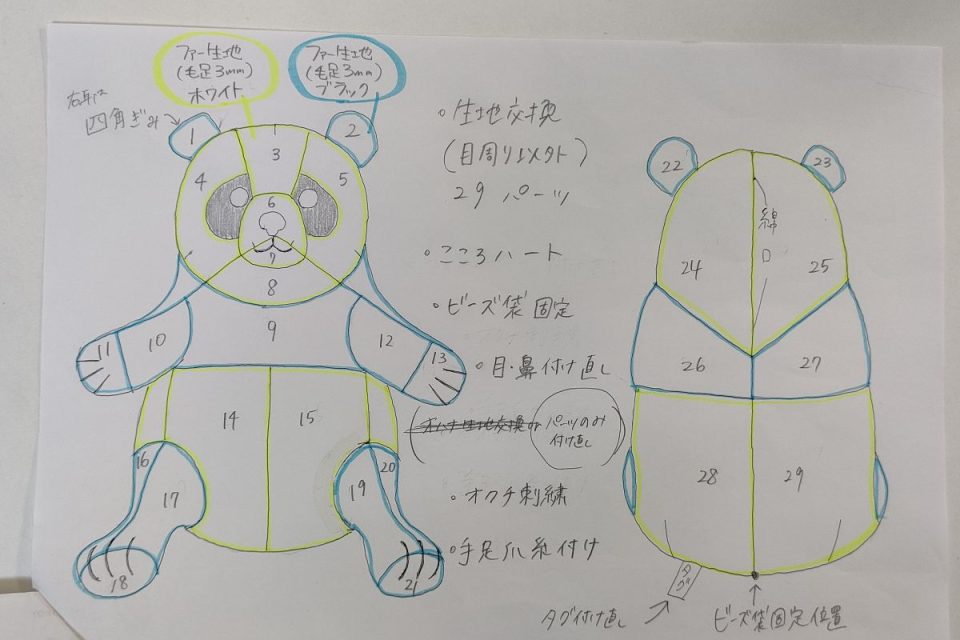 ファー生地
(毛足3mm)
ホワイト
ファー生地
(毛足3mm)
ブラック
右耳は
四角ぎみ
1
2
3
4
5
6
7
8
9
10
11
12
13
14
15
16
17
18
19
20
21
。生地交換
(目周りはメクト)
29パーツ
。こころハート
。ビーズ袋固定
。目・鼻付け直し
パーツのみ
付け直し
。オクチ刺繍
。手足爪糸付け
22
23
綿
24
25
26
27
28
29
タグ
タグ付け直し
ビーズ袋固定位置